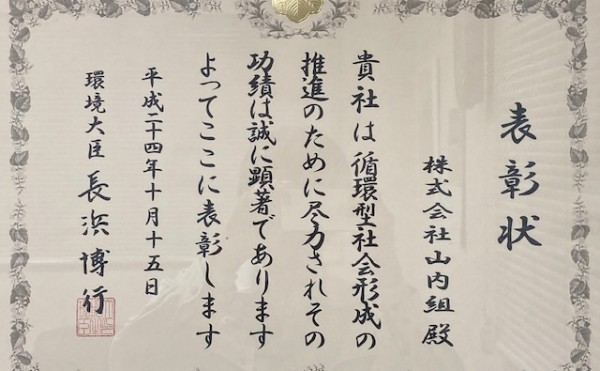 表彰状
株式会社山内組 殿
貴社は循環型社会形成の
推進のために尽力されその
功績は誠に顕著であります
よってここに表彰します
平成二十四年十月十五日
環境大臣 長浜博行